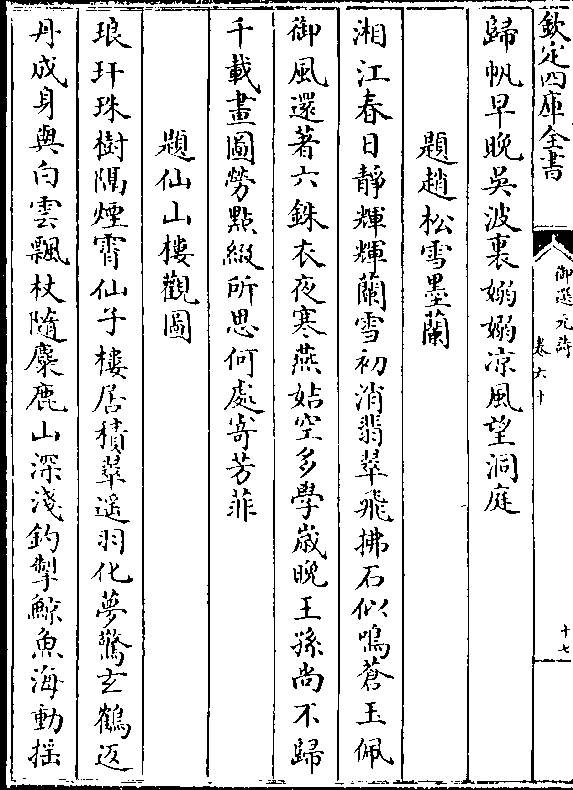 欽定四庫全書
御選元詩
卷六十
十七
歸帆早晚吳波裏嫋嫋凉風望洞庭
題趙松雪墨蘭
湘江春日靜輝輝蘭雪初消翡翠飛拂石似鳴蒼玉佩
御風還著六銖衣夜寒燕姞空多學歲晚王孫尚不歸
千載畫圖勞點綴所思何處寄芳菲
題仙山樓觀圖
琅玕珠樹隔煙霄仙子樓居積翠遥羽化夢驚玄鶴返
丹成身與白雲飄杖隨麋鹿山深淺釣掣鯨魚海動揺